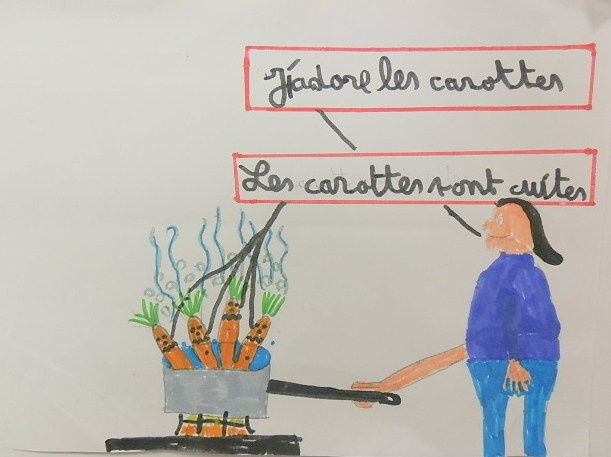 J'adore les carottes
Les carottes sont cuites